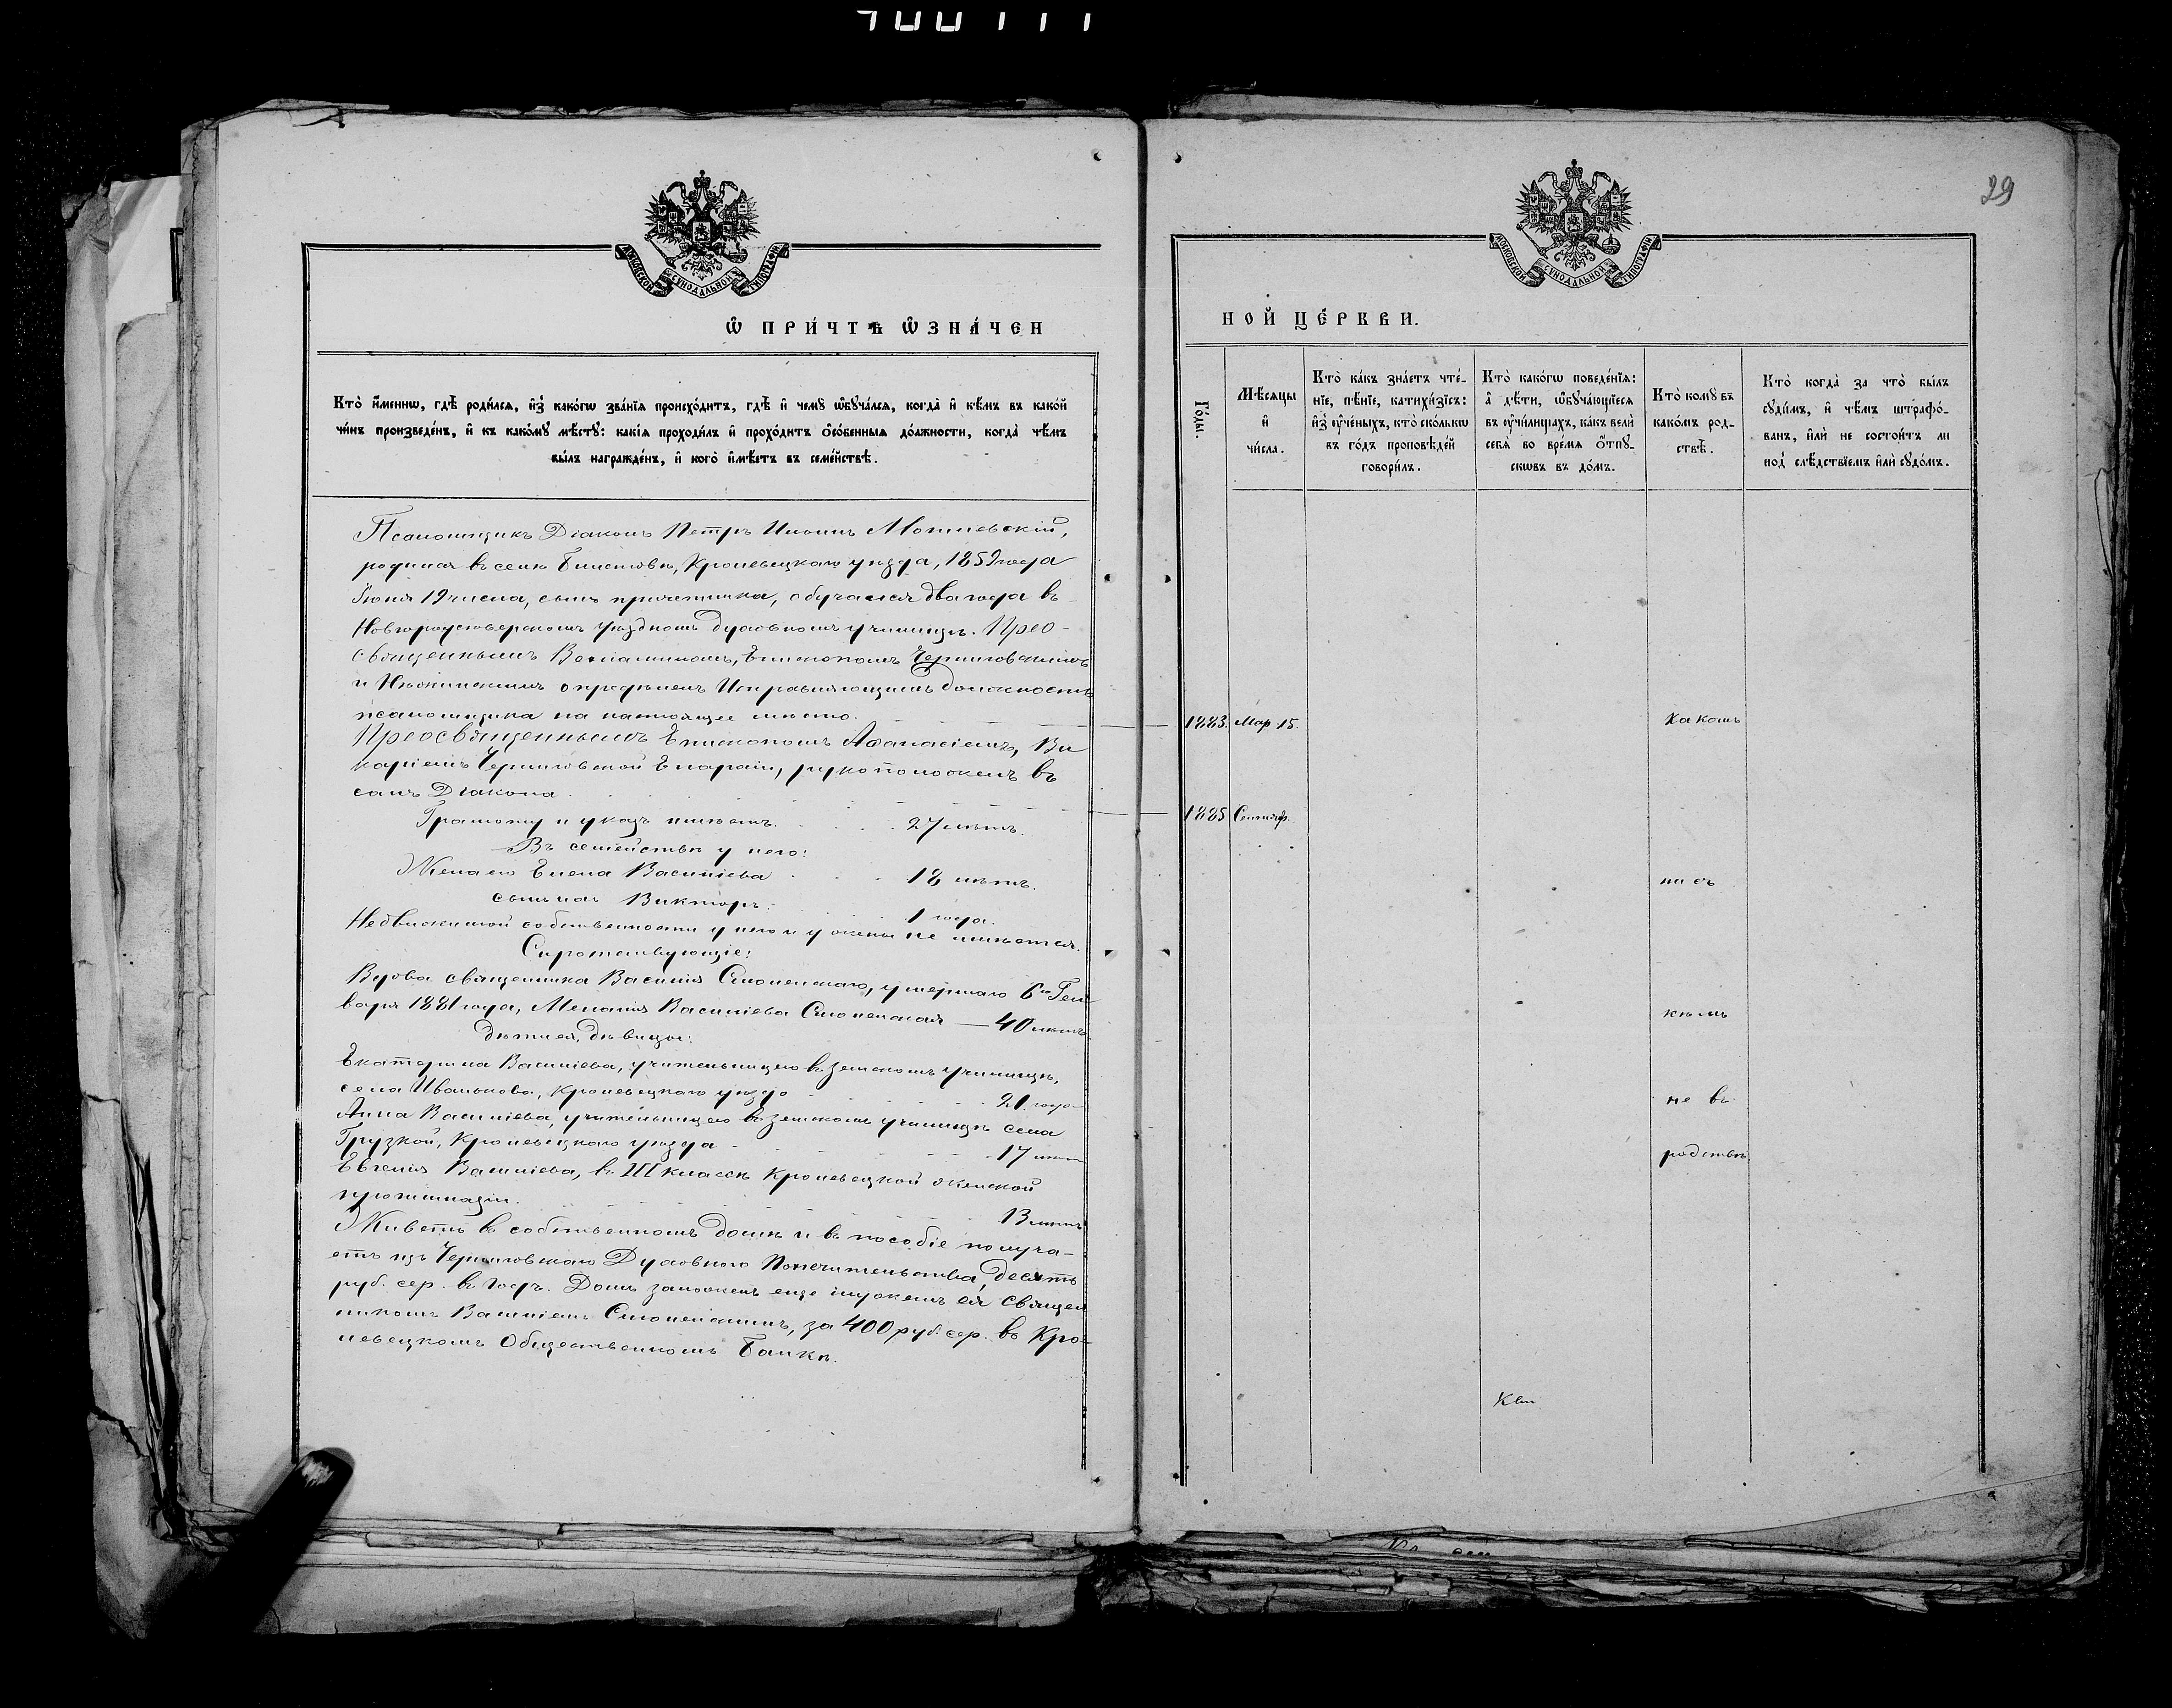 29
МОСКОВСКОЙ СѴНОДАЛЬНОЙ ТИПОГРАФІИ
Ѡ ПРИ́ЧТѢ Ѡ҆ЗНА́ЧЕН
Кто̀ и҆́менно, гдѣ̀ роди́лся, и҆з̾ како́гѡ зва́нїѧ происхо́дитъ, гдѣ̀ и҆ чемꙋ̀ ѡ҆бꙋча́лся, когда̀ и҆ кѣ́мъ въ како́й
чи́нъ произведе́нъ, и҆ къ како́мꙋ мѣ́стꙋ: какі́ѧ проходи́лъ и҆ прохо́дитъ ѻ҆со́бенныѧ до́лжности, когда̀ чѣ́мъ
бы́лъ награжде́нъ, и҆ кого̀ и҆мѣ́етъ въ семе́йствѣ.
Псаломщикъ Діаконъ Петръ Ильинъ Могилевскій,
родился въ селѣ Билотовѣ, Кролевецкаго уѣзда, 1859 года
Іюня 19 числа, сынъ причетника, обучался два года въ
Новгородсѣверскомъ уѣздномъ духовномъ училищѣ. Прео-
священнымъ Веніаминомъ, Епископомъ Черниговскимъ
и Нѣжинскимъ опредѣленъ Исправляющимъ должность
псаломщика на настоящее мѣсто.
Преосвященнымъ Епископомъ Аѳанасіемъ, Ви
каріемъ Черниговской Епархіи, рукоположенъ въ
санъ Діакона.
Грамоту и указъ имѣетъ. 27 лѣтъ.
Въ семействѣ у него:
Жена его Елена Василіева 18 лѣтъ.
сынъ ихъ Викторъ. 1 года.
Недвижимой собственности у него и у жены не имѣется.
Сиротствующіе:
Вдова священника Василія Смоленскаго, умершаго 6го Ген
варя 1881 года, Меланія Василіева Смоленская — 40 лѣтъ
Дѣти ея, дѣвицы:
Екатерина Василіева, учительницею въ земскомъ училищѣ,
села Иванькова, Кролевецкаго уѣзда 21 года
Анна Василіева, учительницею въ земскомъ училищѣ села
Грузкой, Кролевецкаго уѣзда 17 лѣтъ
Евгенія Василіева, въ III классѣ Кролевецкой женской
прогимназіи. 13 лѣтъ
Живетъ въ собственномъ домѣ и въ пособіе получа-
етъ изъ Черниговскаго Духовнаго Попечительства, десять
руб. сер. въ годъ. Домъ заложенъ еще мужемъ ея священ
никомъ Василіемъ Смоленскимъ, за 400 руб. сер. въ Кро-
левецкомъ Общественномъ Банкѣ.
МОСКОВСКОЙ СѴНОДАЛЬНОЙ ТИПОГРАФІИ
НОЙ ЦЕ́РКВИ.
Го́ды.
Мѣ́сѧцы
и҆
чи́сла.
Кто̀ ка́къ зна́етъ чте́-
нїе, пѣ́нїе, катихи́зїсъ:
и҆з̾ ᲂу҆че́ныхъ, кто̀ ско́лькѡ
въ го́дъ проповѣ́дей
говори́лъ.
Кто̀ како́гѡ поведе́нїѧ:
а҆ дѣ́ти, ѡ҆бꙋча́ющїесѧ
въ ᲂу҆чи́лищахъ, ка́къ велѝ
себѧ̀ во вре́мѧ ѻ҆́тпꙋ-
скѡвъ въ до́мъ.
Кто̀ комꙋ̀ въ
како́мъ род-
ствѣ̀.
Кто̀ когда̀ за что̀ бы́лъ
сꙋди́мъ, и҆ чѣ́мъ штрафо́-
ванъ, и҆лѝ не состои́тъ ли
под̾ слѣ́дствїемъ и҆лѝ сꙋдо́мъ.
1883. Мар. 15.
какомъ
1885 Сентяб.
ни съ
кѣмъ
не въ
родствѣ